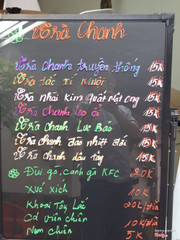 Trà Chanh
Trà chanh truyền thống 15K
Trà tắc xí muội 15K
Trà nhài kim quất mật ong 15K
Trà chanh 15K
Trà chanh Lục Bảo 15K
Trà chanh đào nhiệt đới 15K
Trà chanh dâu tây 15K
Đùi gà, cánh gà KFC 20K
Xúc xích 10K
Khoai Tây Lắc 20K
Cá viên chiên 10K
Nem chua 5K